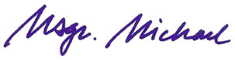 Msgr. Michael